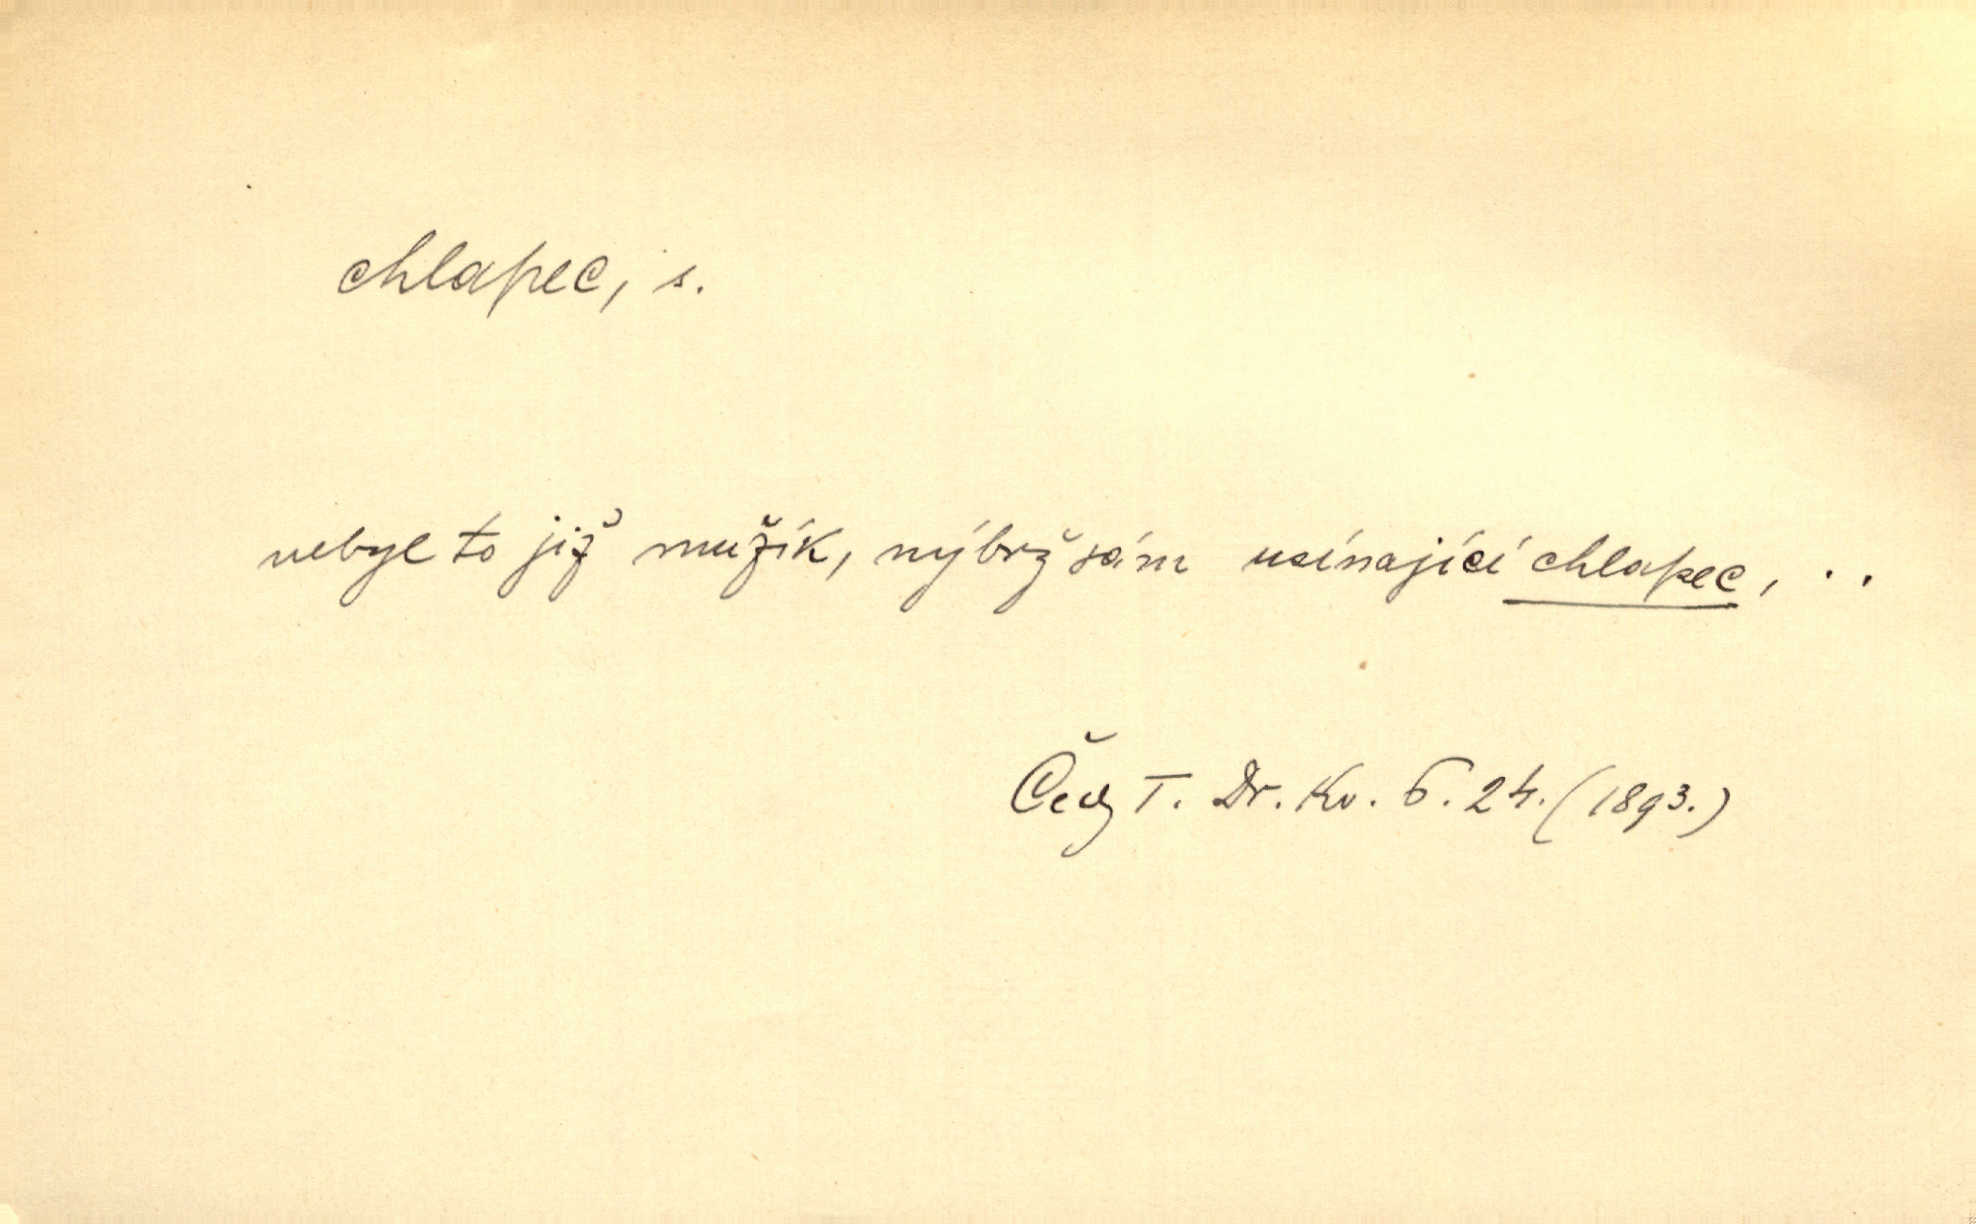 chlapec, s.
nebyl to již mužík, nýbrž sám usínající chlapec, . .
Čech T. Dr. Kv. 6. 24. (1893.)